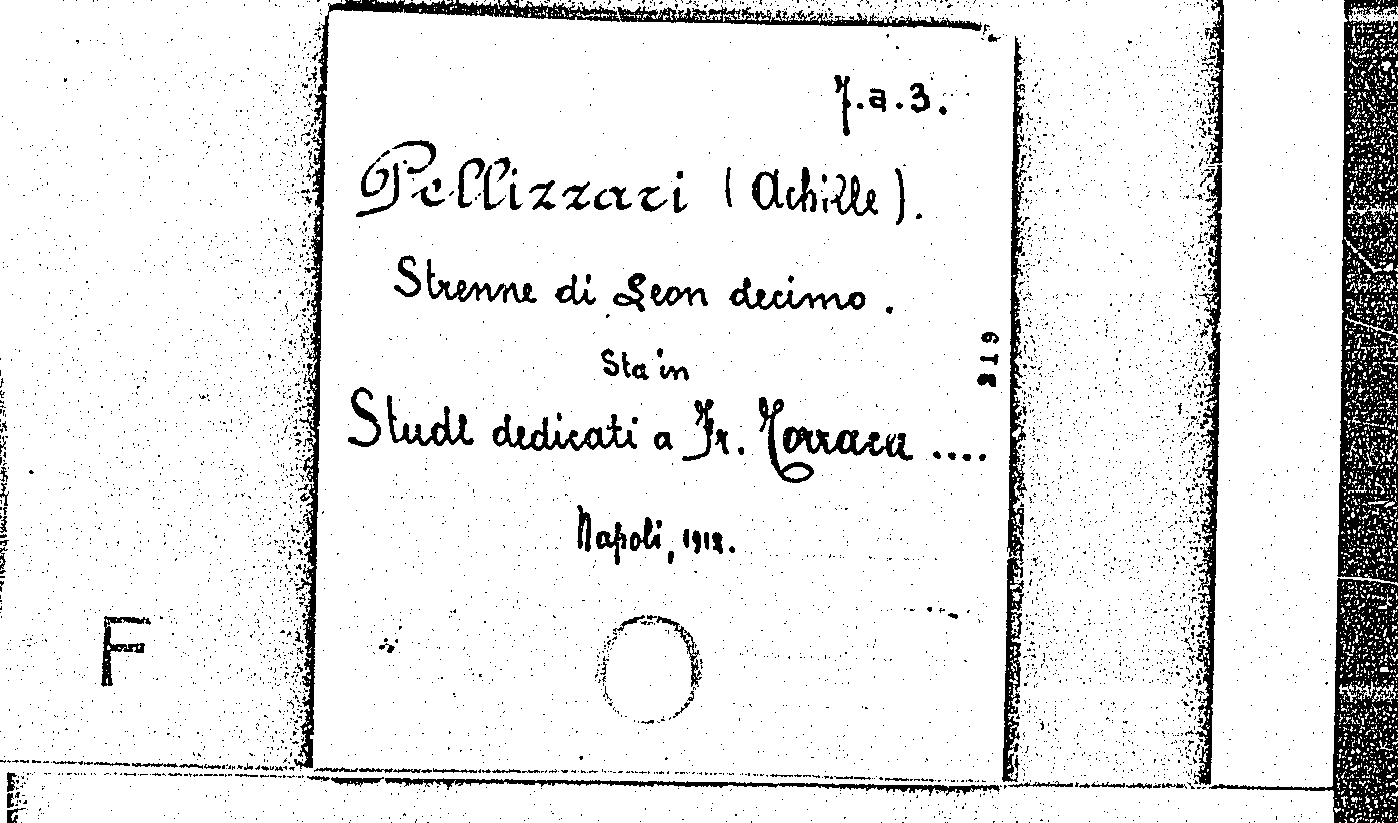 7.a.3.
Pellizzari (Achille).
Strenne di Leon decimo.
Sta in
Studi dedicati a Fr. Torraca ....
Napoli, 1912.
F